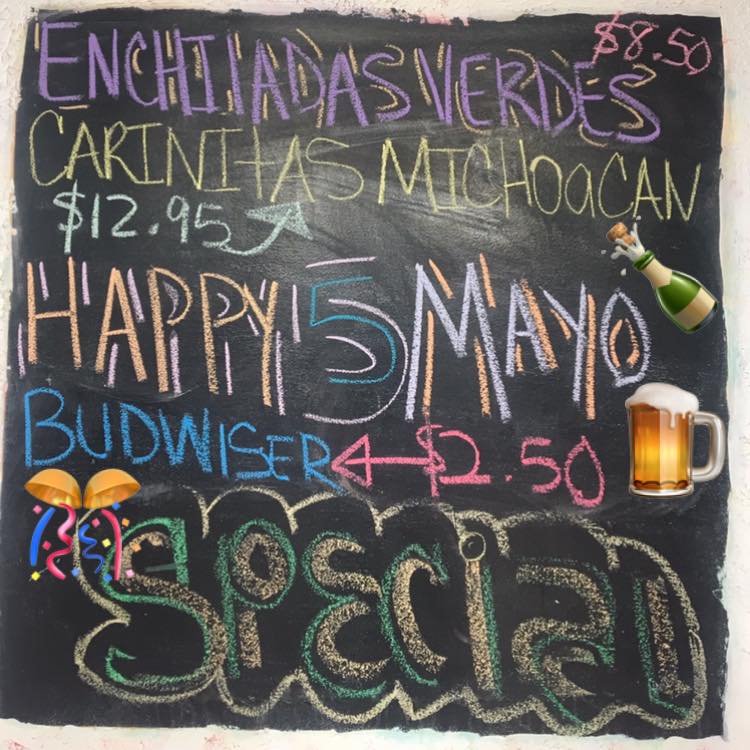 ENCHILADAS VERDES $8.50
CARINITAS MICHOACAN
$12.95
HAPPY 5 MAYO
BUDWISER $2.50
SPECIAL